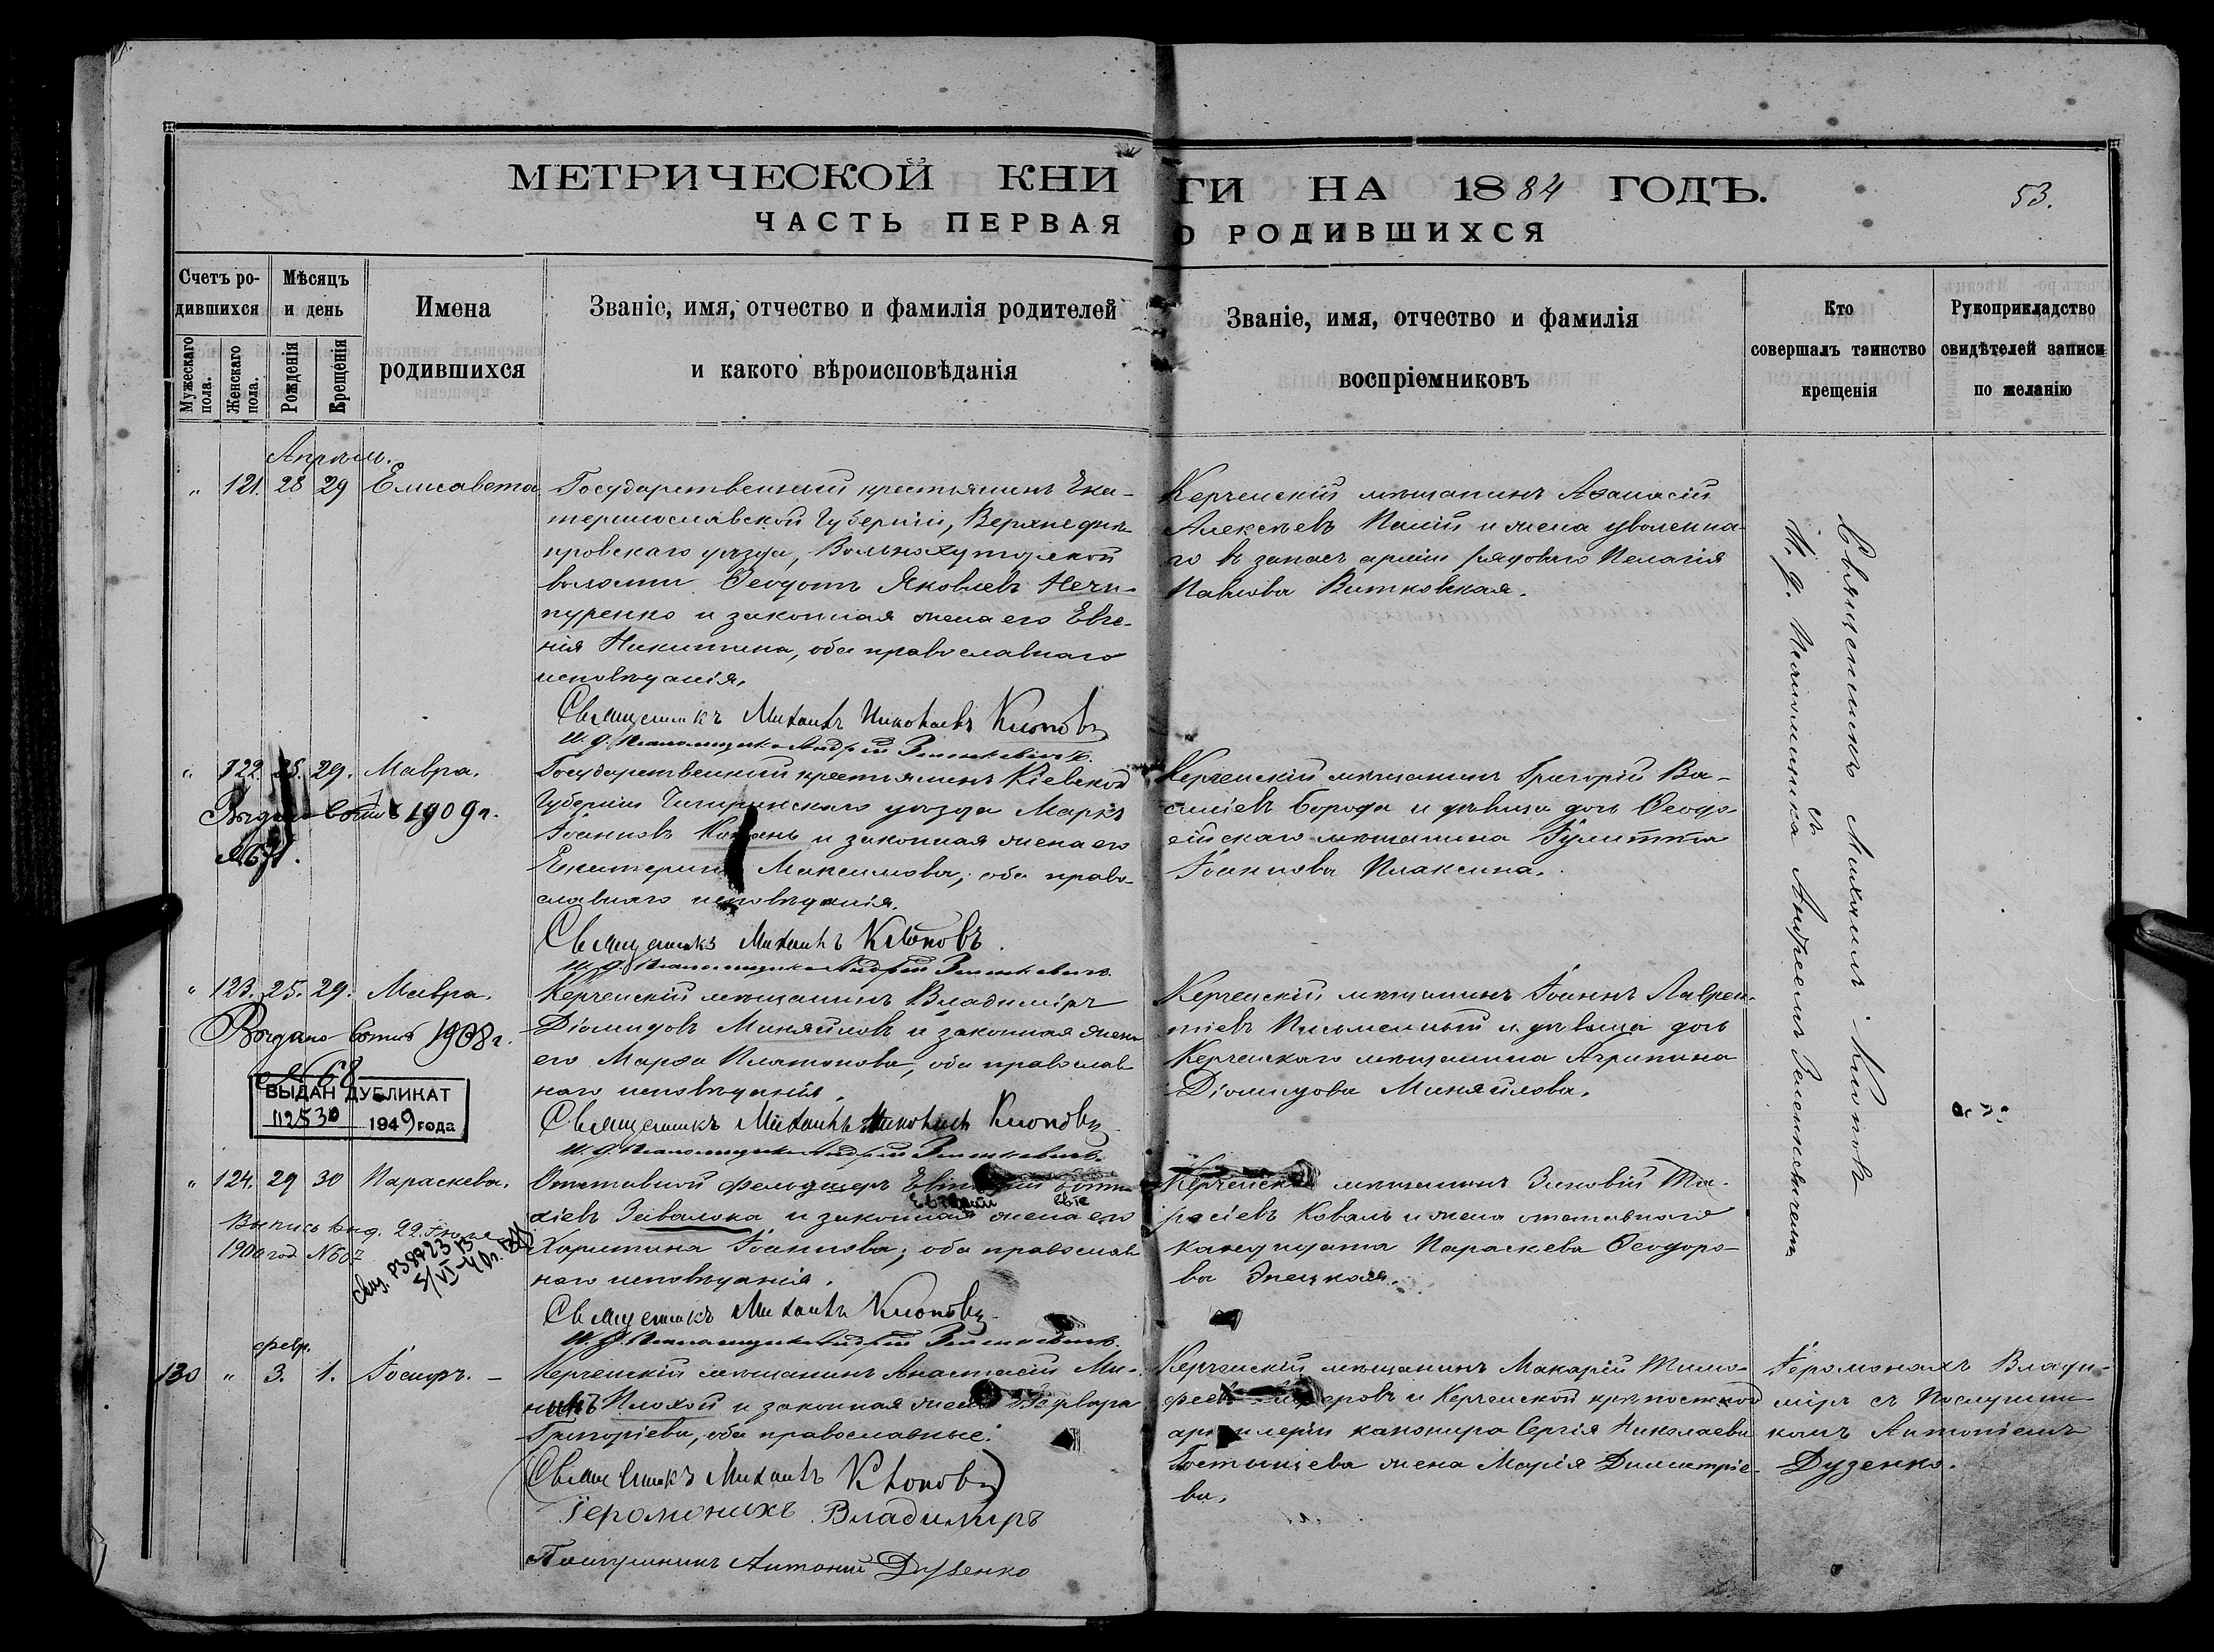 МЕТРИЧЕСКОЙ КНИГИ НА 1884 ГОДЪ.
53.
ЧАСТЬ ПЕРВАЯ О РОДИВШИХСЯ
Счетъ ро-
дившихся
Мужескаго пола.
Женскаго пола.
Мѣсяцъ
и день
Рожденія
Крещенія
Имена
родившихся
Званіе, имя, отчество и фамилія родителей
и какого вѣроисповѣданія
Званіе, имя, отчество и фамилія
воспріемниковъ
Кто
совершалъ таинство
крещенія
Рукоприкладство
свидѣтелей записи
по желанію
Апрѣль.
„ 121. 28 29 Елисавета
Государственный крестьянинъ Ека-
теринославской Губерніи, Верхнеднѣ-
провскаго уѣзда, Вольнохуторской
волости Ѳеодотъ Яковлевъ Нечи-
пуренко и законная жена его Евге-
нія Никитина, оба православнаго
исповѣданія.
Священникъ Михаилъ Николаевъ Клоповъ
И. д. Псаломщика Андрей Зенкевичъ.
Керченскій мѣщанинъ Аѳанасій
Алексѣевъ Палій и жена уволенна-
го въ запасъ арміи рядоваго Пелагія
Павлова Витковская.
Священникъ Михаилъ Клоповъ
съ
И. д. Псаломщика Андреемъ Зенкевичемъ
„ 122. 25. 29. Мавра.
Выдано 1909 г.
№ 671.
Государственный крестьянинъ Кіевской
Губерніи Чигиринскаго уѣзда Маркъ
Іоанновъ и законная жена его
Екатерина Максимова, оба право-
славнаго исповѣданія.
Священникъ Михаилъ Клоповъ.
И. д. Псаломщика Андрей Зенкевичъ.
Керченскій мѣщанинъ Григорій Ва-
силіевъ Борода и дѣвица дочь Ѳеодо-
сійскаго мѣщанина Іулитта
Іоаннова Плаксина.
„ 123. 25. 29. Мавра.
Выдано 1908 г.
№ 68
ВЫДАН ДУБЛИКАТ
112530 1949 года
Керченскій мѣщанинъ Владиміръ
Діомидовъ Миняйловъ и законная жена
его Марѳа Платонова, оба православ
наго исповѣданія.
Священникъ Михаилъ Николаевъ Клоповъ
И. д. Псаломщика Андрей Зенкевичъ.
Керченскій мѣщанинъ Іоаннъ Лаврен-
тіевъ Письменный и дѣвица дочь
Керченскаго мѣщанина Агрипина
Діомидова Миняйлова.
„ 124. 29 30 Параскева.
Выпись выд. 22 Іюля
1900 год №607
Отставной фельдшеръ
хіевъ Завалока и законная жена его
Харитина Іоаннова; оба православ
наго исповѣданія.
Священникъ Михаилъ Клоповъ
И. д. Псаломщика Андрей Зенкевичъ.
Керченскій мѣщанинъ Зиновій Та-
расіевъ Коваль и жена отставнаго
кандидата Параскева Ѳеодоро-
ва
февр.
130 „ 3. 1. Іосифъ. –
Керченскій мѣщанинъ Анастасій Ми-
нинъ Плохой и законная жена Варвара
Григоріева, оба православные.
Священникъ Михаилъ Клоповъ
Іеромонахъ Владимиръ
Послушникъ Антоній Дузенко
Керченскій мѣщанинъ Макарій Тимо-
феевъ и Керченской крѣпостной
артиллеріи канонира Сергія Николаева
жена Марія Димитріе-
ва.
Іеромонахъ Влади-
міръ съ Послушни-
комъ Антоніемъ
Дузенко.